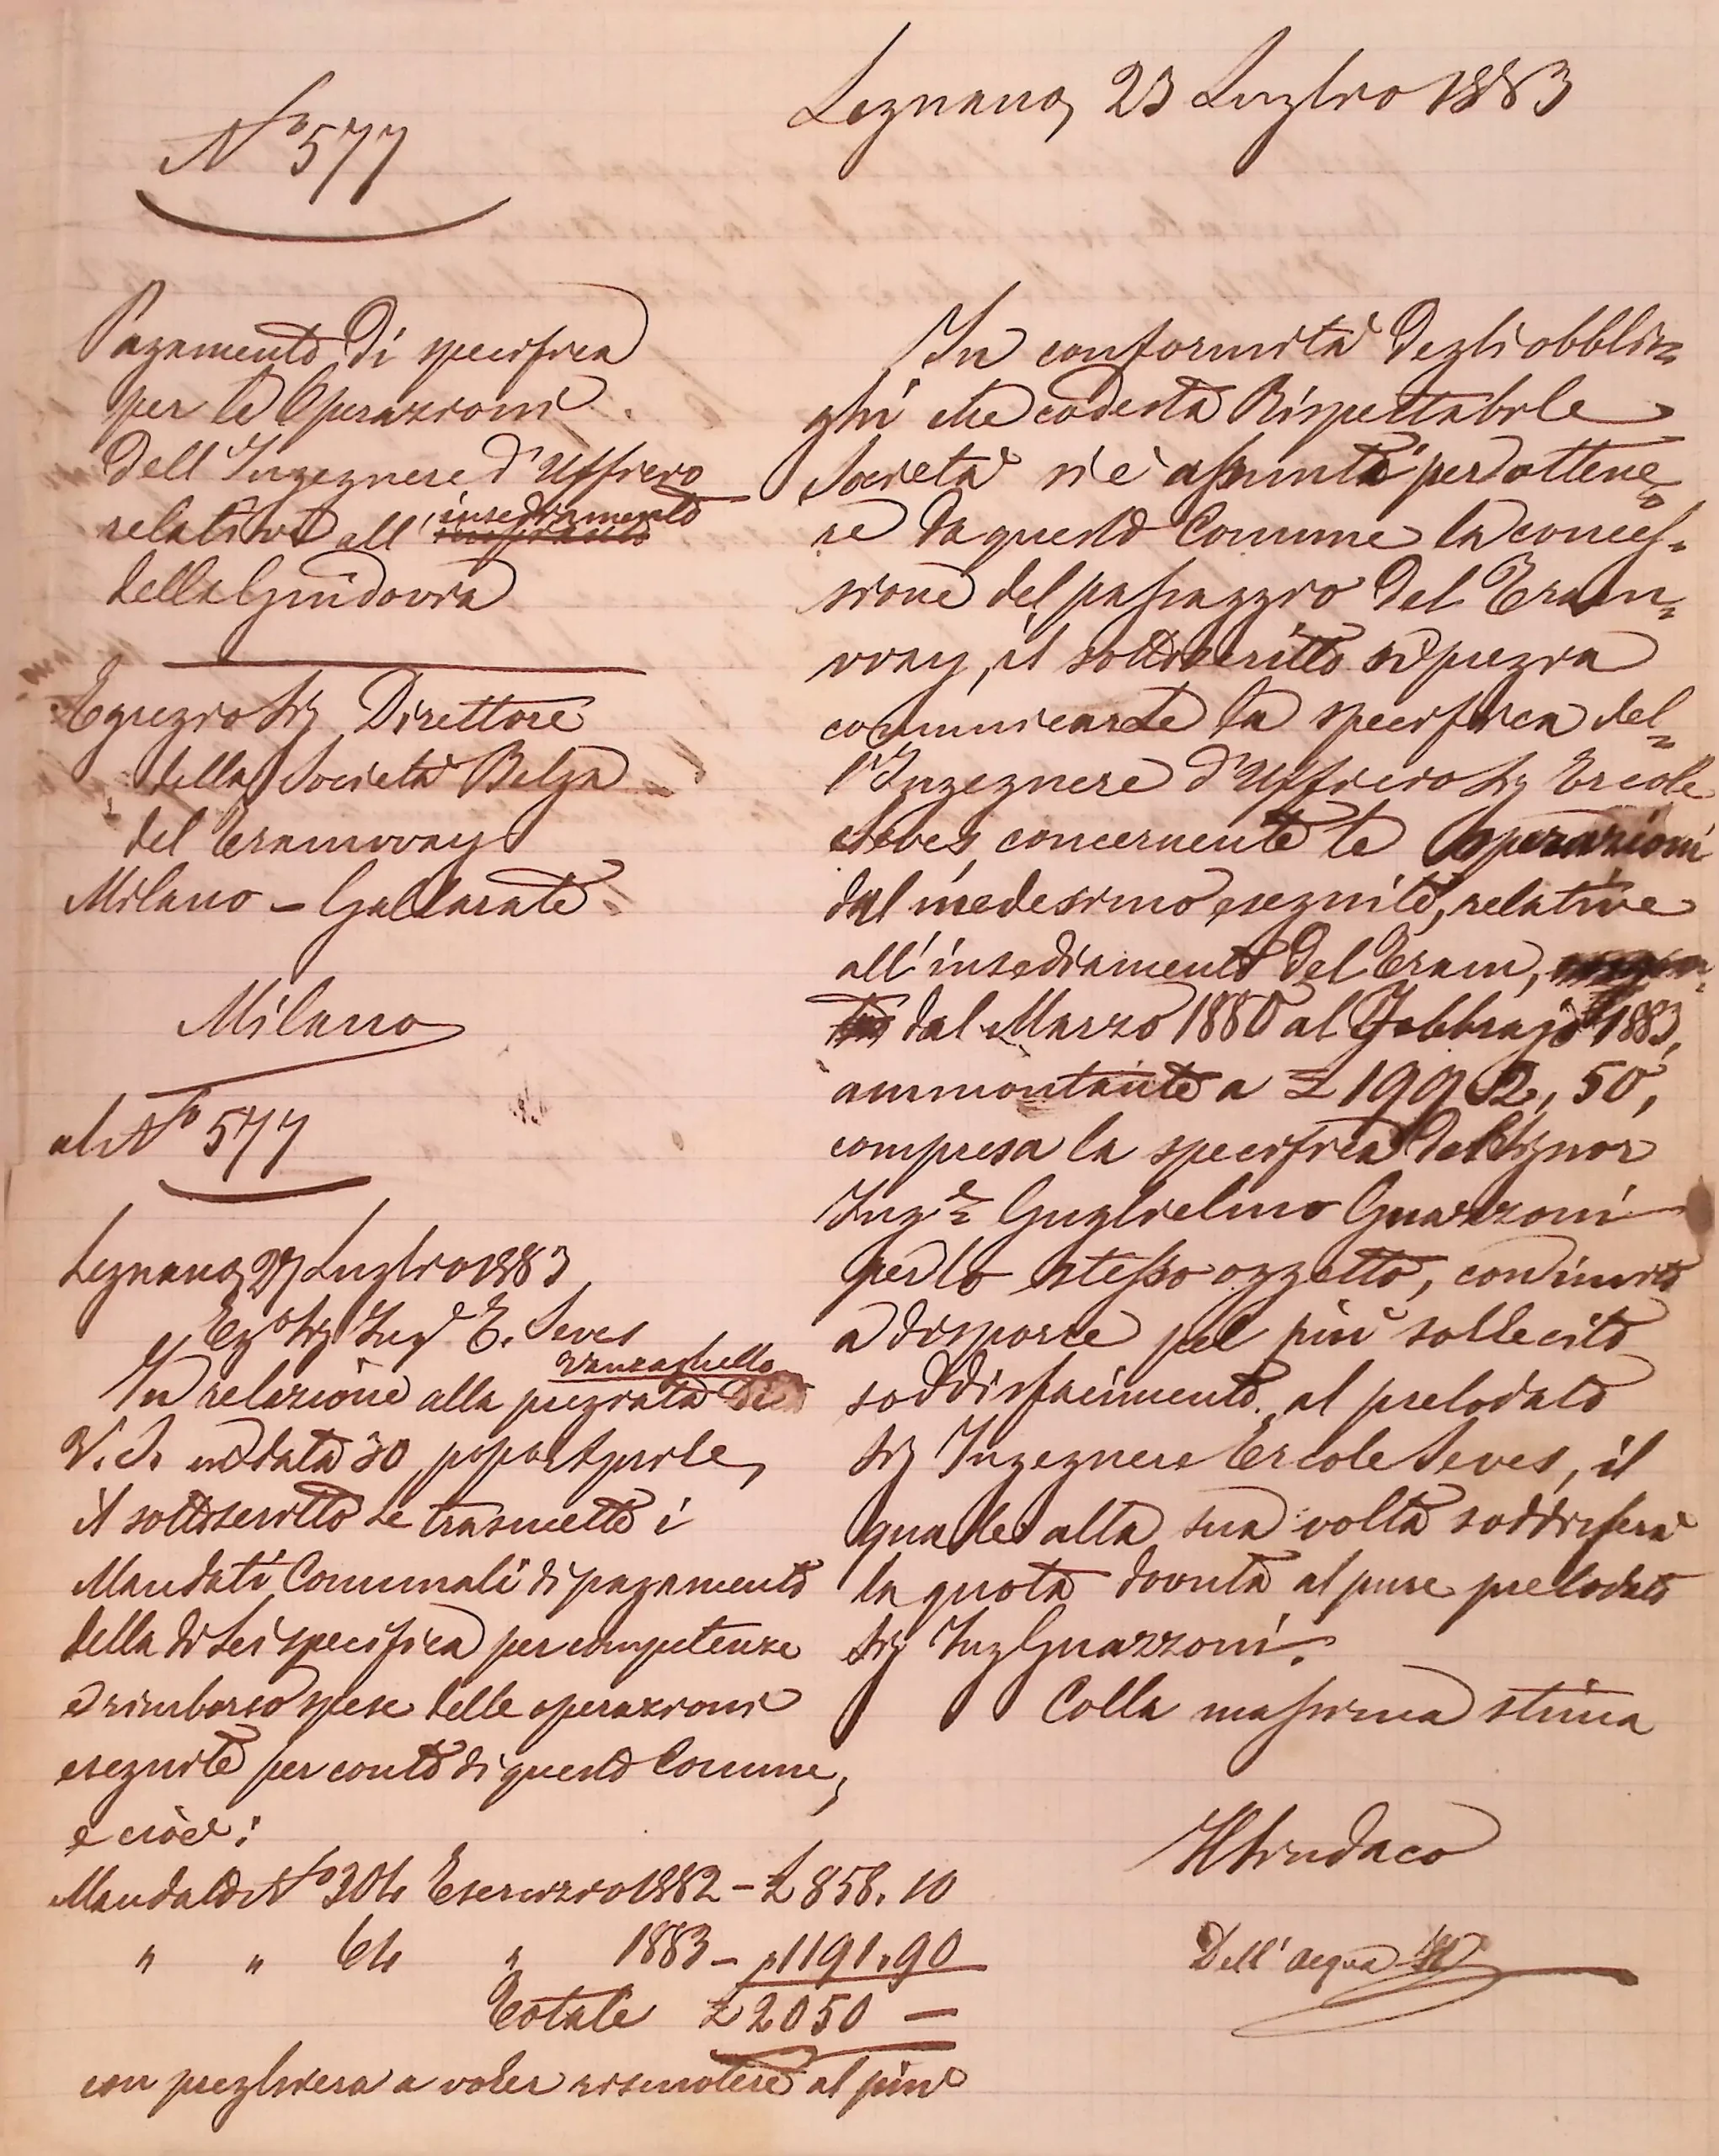 Legnano, 23 Luglio 1883
N° 577
Pagamento di specifica
per le Operazioni
dell'Ingegnere d'Ufficio
relative all' insediamento
della Guidovia
Egregio Sig Direttore
della Società Belga
del Tramway
Milano - Gallarate
Milano
In conformità degli obbli=
ghi che codesta Rispettabile
Società si è assunta per ottene=
re da questo Comune la conces=
sione del passaggio del Tram=
way, il sottoscritto si pregia
comunicarle la specifica del=
l'Ingegnere d'Ufficio Sig Ercole
Seves, concernente le Operazioni
dal medesimo eseguite, relative
all'insediamento del Tram,
dal Marzo 1880 al Febbrajo 1883,
ammontante a £ 1992,50,
compresa la specifica del Signor
Ing.e Guglielmo Guazzoni
per lo stesso oggetto, con invito
a disporre pel più sollecito
soddisfacimento al prelodato
Sig Ingegnere Ercole Seves, il
quale alla sua volta soddisferà
la quota dovuta al pure prelodato
Sig Ing Guazzoni.
Colla massima stima
Il Sindaco
Dell'Acqua
al N° 577
Legnano, 27 Luglio 1883
Eg° Sig Ing.e E. Seves
Vanzaghello
In relazione alla pregiata di
V. S. in data 30 pspo Aprile,
il sottoscritto le trasmette i
Mandati Comunali di pagamento
della di Lei specifica per competenze
e rimborso spese delle operazioni
eseguite per conto di questo Comune,
e cioè:
Mandato N° 304 Esercizio 1882 - £ 858.10
" " 64 " 1883 - " 1191.90
Totale £ 2050 —
con preghiera a voler riscuotere al più